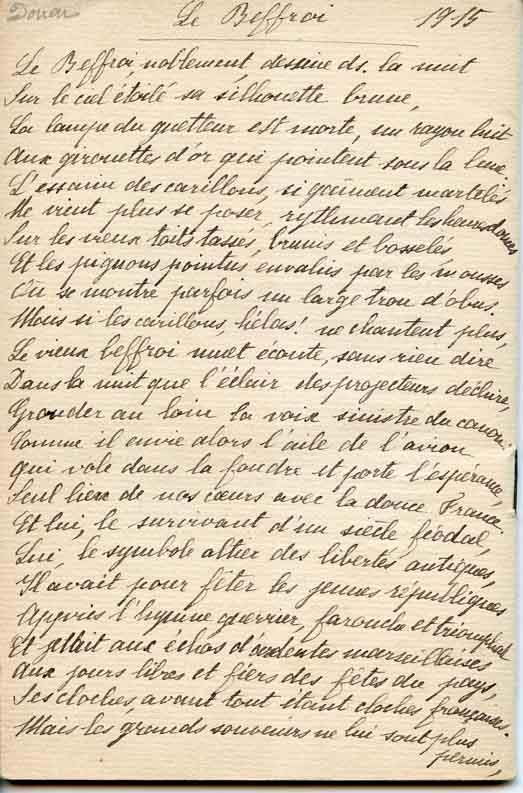 Douai
Le Beffroi 1915
Le Beffroi, noblement, dessine ds. la nuit
Sur le ciel étoilé sa silhouette brune,
La lampe du guetteur est morte, un rayon luit
Aux girouettes d'or qui pointent sous la lune.
L'essaim des carillons, si gaîment martelés
Ne vient plus se poser, rythmant les heures douces
Sur les vieux toits tassés, brunis et bosselés,
Et les pignons pointus envahis par les mousses
Où se montre parfois un large trou d'obus.
Mais si les carillons, hélas! ne chantent plus,
Le vieux beffroi muet écoute, sans rien dire
Dans la nuit que l'éclair des projecteurs déchire,
Gronder au loin la voix sinistre du canon.
Comme il envie alors l'aile de l'avion
qui vole dans la foudre et porte l'espérance,
Seul lien de nos cœurs avec la douce France.
Et lui, le survivant d'un siècle féodal,
Lui, le symbole altier des libertés antiques,
Il avait pour fêter les jeunes républiques
Appris l'hymne guerrier, farouche et triomphal
Et jetait aux échos d'ardentes marseillaises
Aux jours libres et fiers des fêtes du pays,
Ses cloches avant tout étant cloches françaises.
Mais les grands souvenirs ne lui sont plus
permis,